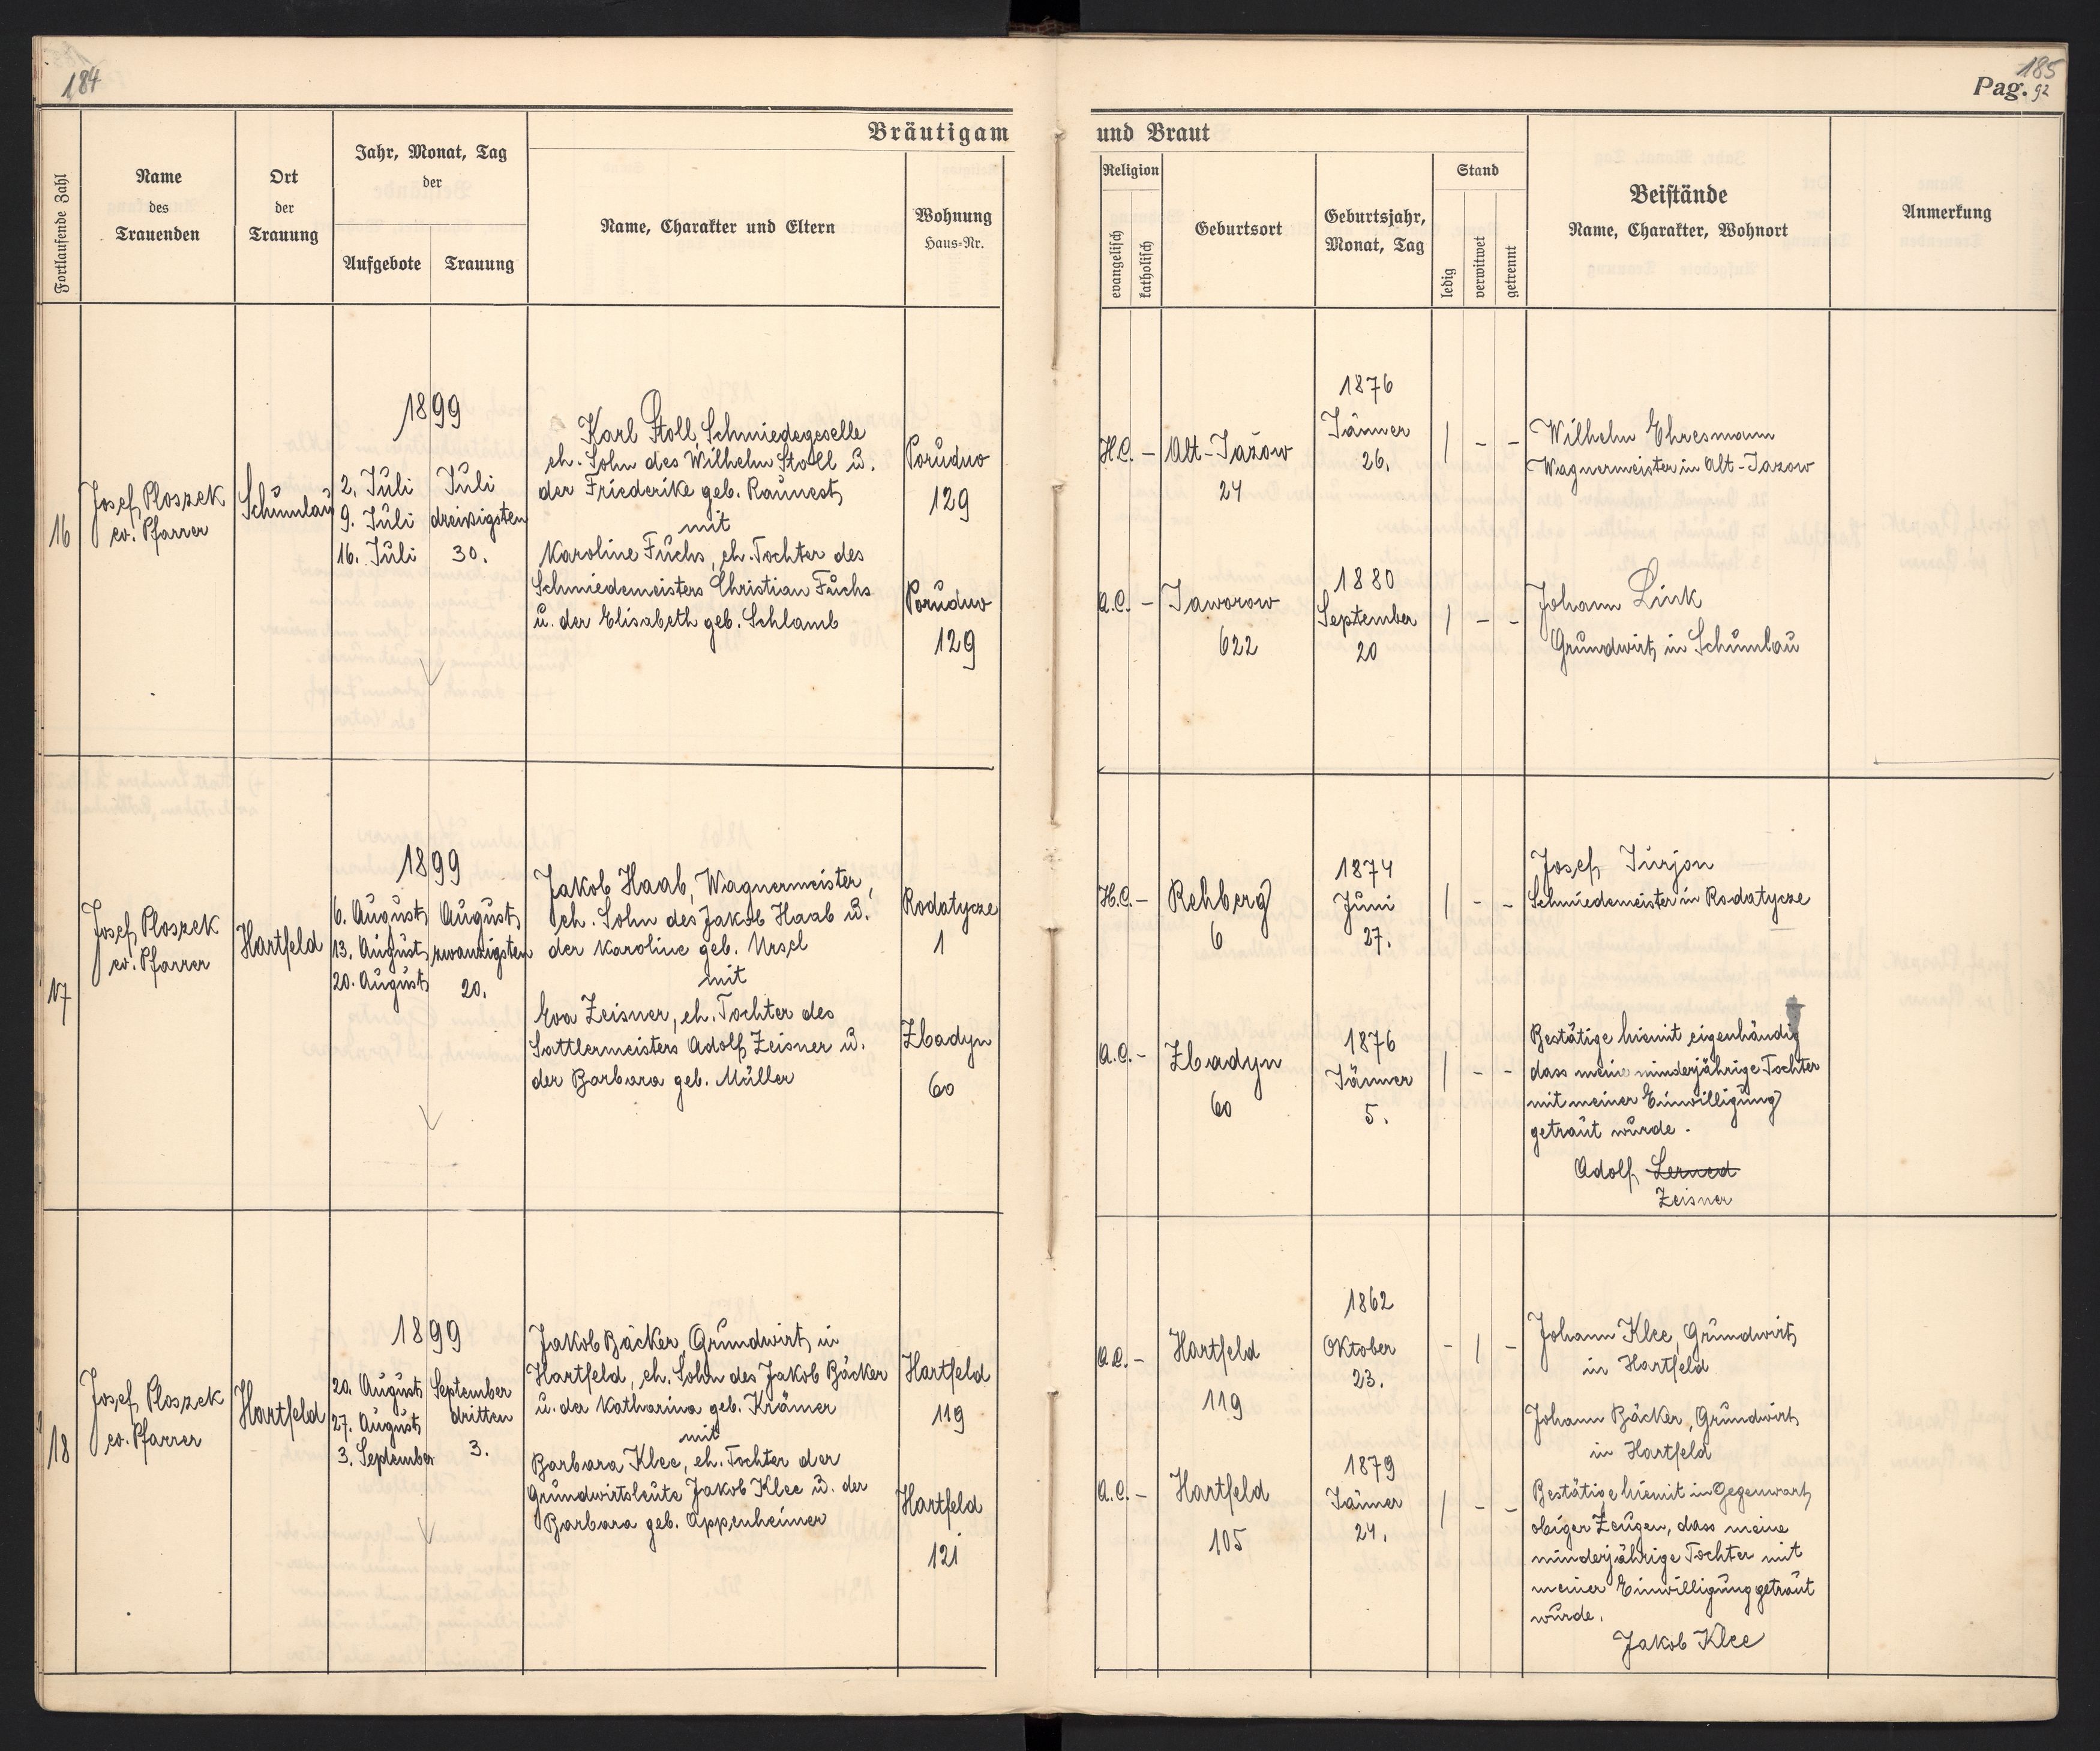 184
185
Pag. 92
Bräutigam und Braut
Fortlaufende Zahl
Name
des
Trauenden
Ort
der
Trauung
Jahr, Monat, Tag
der
Aufgebote
Trauung
Name, Charakter und Eltern
Wohnung
Haus-Nr.
Religion
evangelisch
katholisch
Geburtsort
Geburtsjahr,
Monat, Tag
Stand
ledig
verwitwet
getrennt
Beistände
Name, Charakter, Wohnort
Anmerkung
16
Josef Ploszek
ev. Pfarrer
Schumlau
1899
2. Juli
9. Juli
16. Juli
Juli
dreizigsten
30.
Karl Stoll, Schmiedegeselle
eh. Sohn des Wilhelm Stoll u.
der Friederike geb.
mit
Karoline Fuchs, eh. Tochter des
Schmiedemeisters Christian Fuchs
u. der Elisabeth geb. Schlamb
Porudno
129
Porudno
129
H.C. -
Alt-Jazów
24
1876
Jänner
26.
| - -
Wilhelm Ehresmann
Wagnermeister in Alt-Jazow
A.C. -
Jaworow
622
1880
September
20
| - -
Johann Link
Grundwirt in Schumlau
17
Josef Ploszek
ev. Pfarrer
Hartfeld
1899
6. August
13. August
20. August
August
zwanzigsten
20.
Jakob Haab, Wagnermeister,
eh. Sohn des Jakob Haab u.
der Karoline geb. Ursel
mit
Eva Zeisner, eh. Tochter des
Sattlermeisters Adolf Zeisner u.
der Barbara geb. Müller
Rodatycze
1
Zbadyn
60
H.C. -
Rehberg
6
1874
Juni
27.
| - -
Josef Jurjon
Schmiedemeister in Rodatycze
A.C. -
Zbadyn
60
1876
Jänner
5.
| - -
Bestätige hiemit eigenhändig
dass meine minderjährige Tochter
mit meiner Einwilligung
getraut wurde.
Adolf
Zeisner
18
Josef Ploszek
ev. Pfarrer
Hartfeld
1899
20. August
27. August
3. September
September
dritten
3.
Jakob Bäcker, Grundwirt in
Hartfeld, eh. Sohn des Jakob Bäcker
u. der Katharina geb. Krämer
mit
Barbara Klee, eh. Tochter der
Grundwirtsleute Jakob Klee u. der
Barbara geb. Oppenheimer
Hartfeld
119
Hartfeld
121
A.C. -
Hartfeld
119
1862
Oktober
23.
- | -
Johann Klee, Grundwirt
in Hartfeld
Johann Bäcker, Grundwirt
in Hartfeld
A.C. -
Hartfeld
105
1879
Jänner
24.
| - -
Bestätige hiemit in Gegenwart
obiger Zeugen, dass meine
minderjährige Tochter mit
meiner Einwilligung getraut
wurde.
Jakob Klee